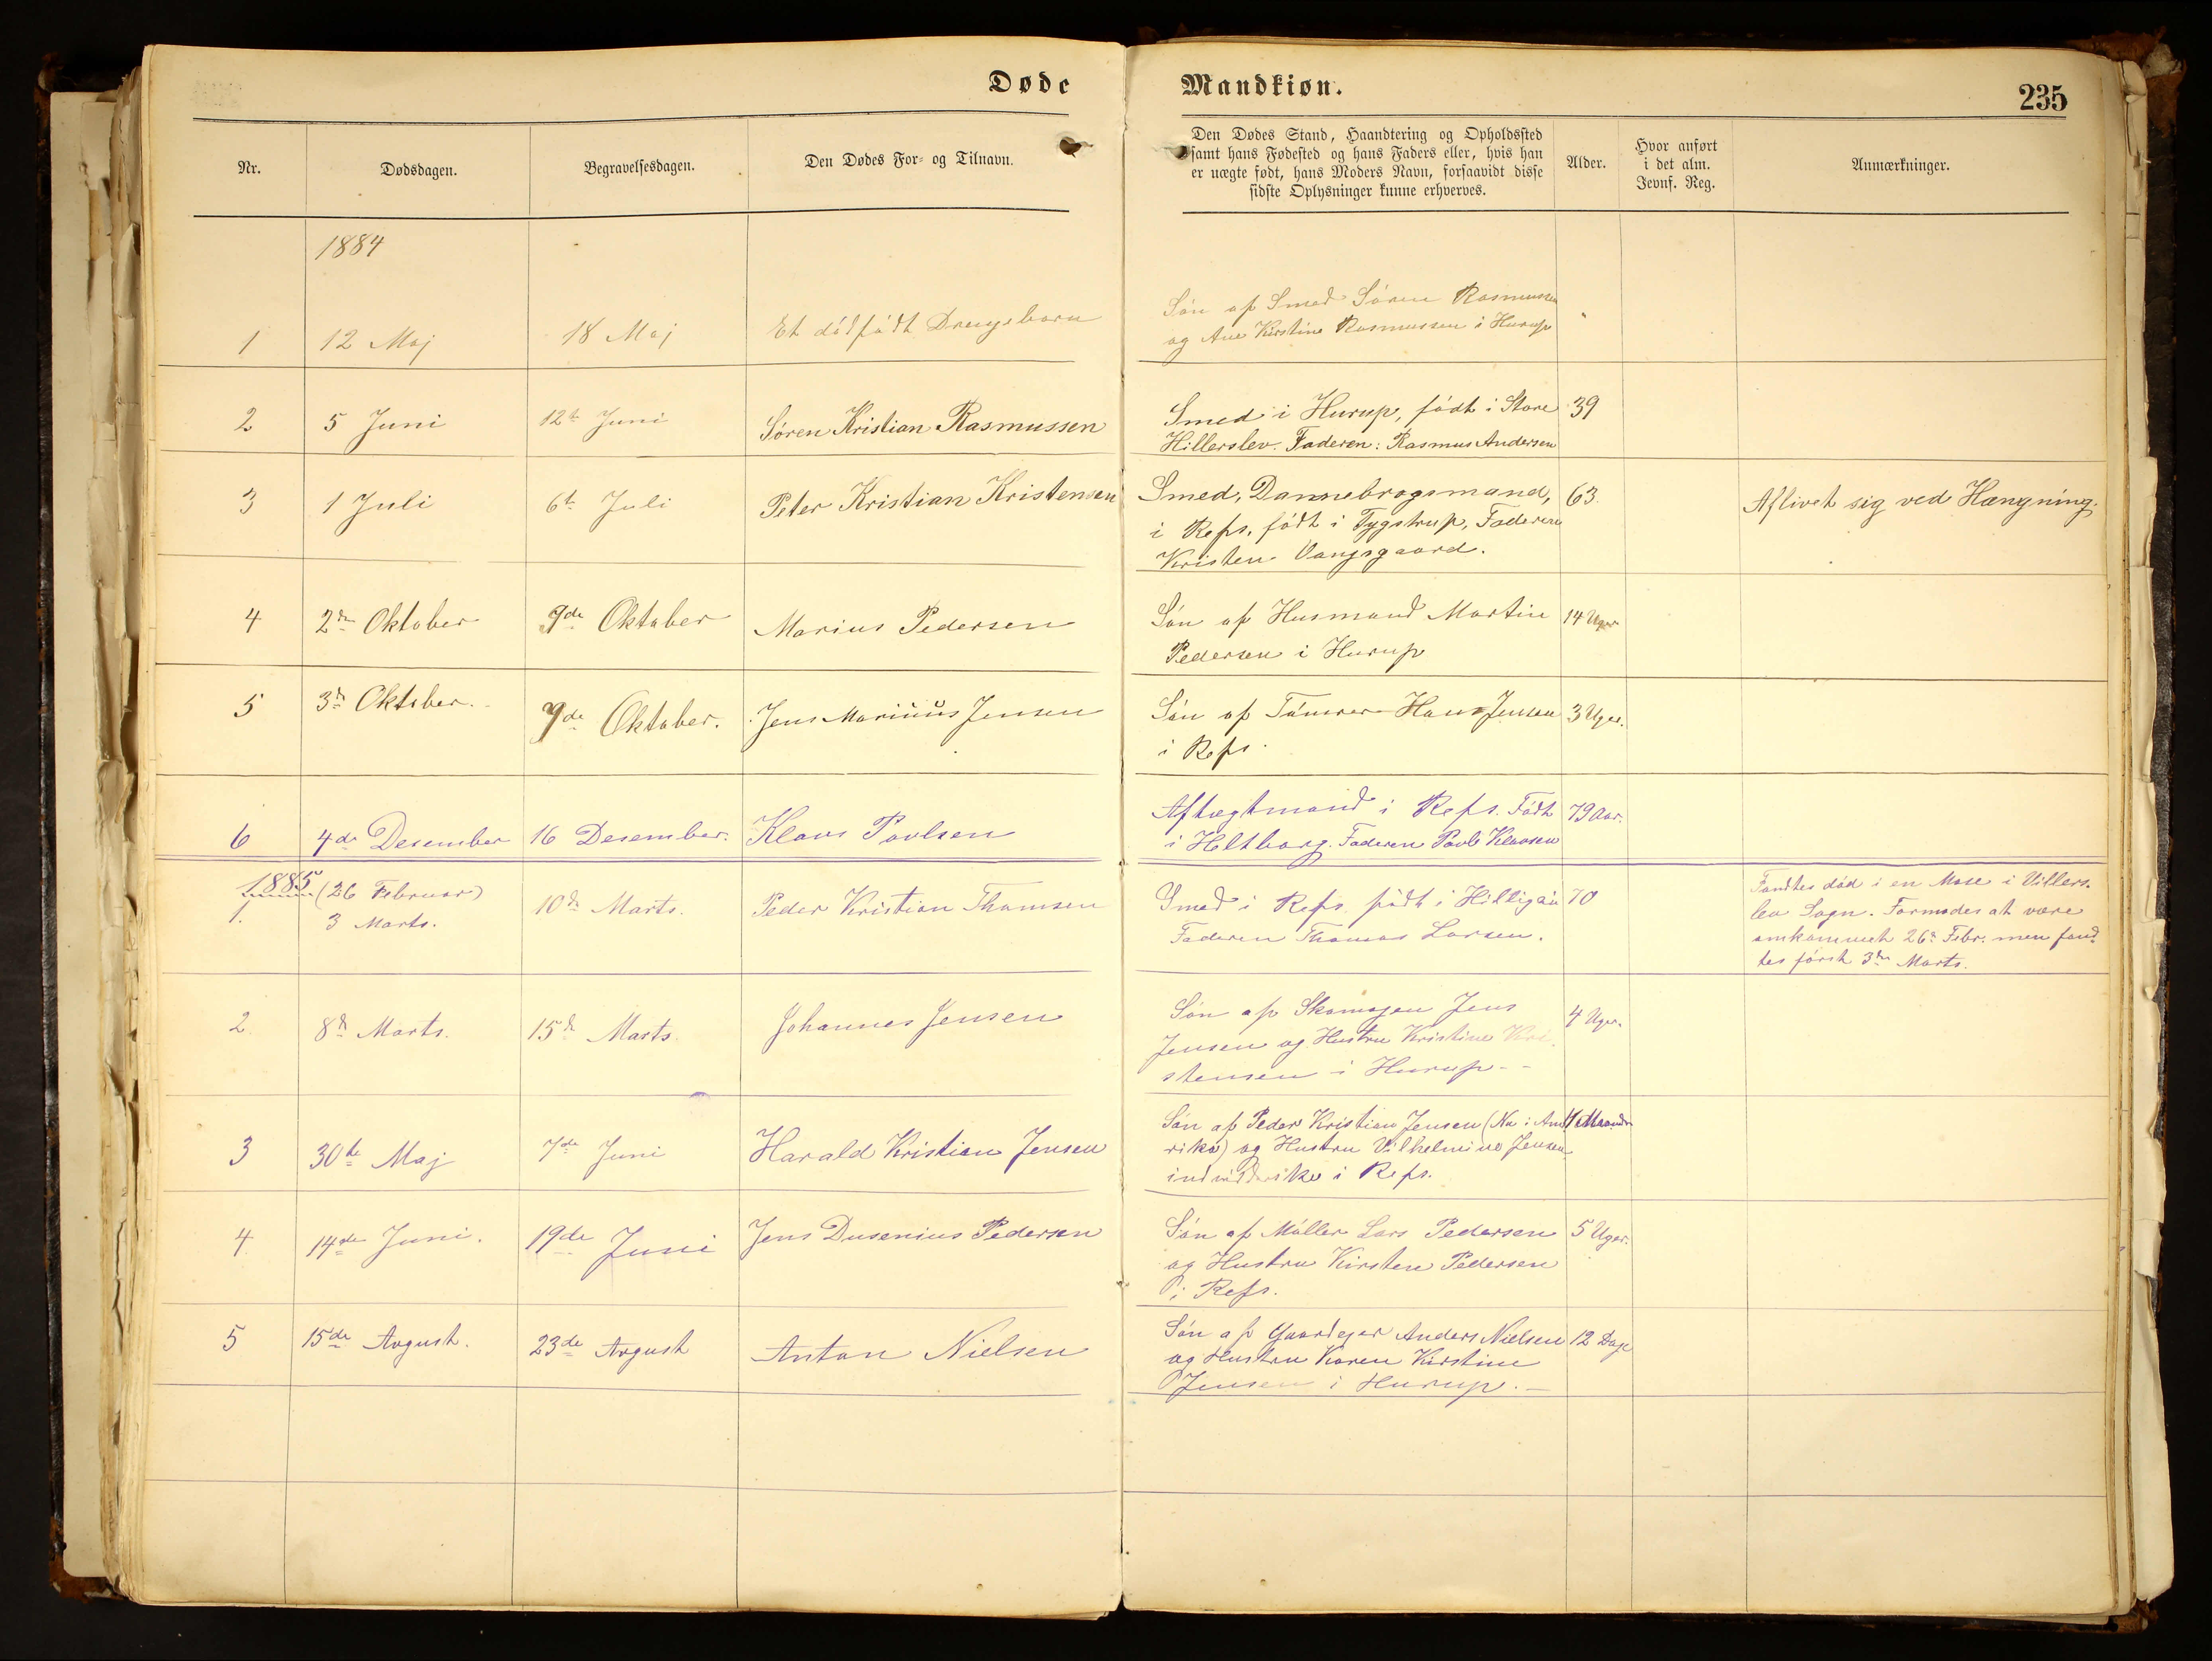 Døde
Mandkiøn.
235
Nr.
Dødsdagen.
Begravelsesdagen.
Den Dødes For- og Tilnavn.
Den Dødes Stand, Haandtering og Opholdssted
samt hans Fødested og hans Faders eller, hvis han
er uægte født, hans Moders Navn, forsaavidt disse
sidste Oplysninger kunne erhverves.
Alder.
Hvor anført
i det alm.
Jevnf. Reg.
Anmærkninger.
1884
1
12 Maj
18 Maj
Et dödfödt Drengebarn
Sön af Smed Sören Rasmussen
og Ane Kirstine Rasmussen i Hurup
"
2
5 Juni
12t Juni
Sören Kristian Rasmussen
Smed i Hurup, födt i Store
Hillerslev. Faderen: Rasmus Andersen
39
3
1 Juli
6t Juli
Peter Kristian Kristensen
Smed, Dannebrogsmand,
i Refs, födt i Tygstrup, Faderen
Kristen Vangsgaard.
63
Aflivet sig ved Hængning.
4
2den Oktober
9de Oktober
Marius Pedersen
Sön af Husmand Martin
Pedersen i Hurup
14 Uger
5
3d Oktober.
9de Oktober.
Jens Mariŭŭs Jensen
Sön af Tömrer Hans Jensen
i Refs.
3 Uger.
6
4de Desember
16 Desember.
Klavs Povlsen
Aftægtmand i Refs. Födt
i Heltborg. Faderen Povl Klavsen
79 Aar.
1885
1.
(26 Februar)
3 Marts.
10d Marts.
Peder Kristian Thomsen
Smed i Refs födt i Hilligsö
Faderen Thomas Larsen.
70
Fandtes död i en Mose i Villers-
lev Sogn. Formodes at være
omkommet 26d Febr. men fand-
tes först 3de Marts.
2.
8d Marts.
15d Marts.
Johannes Jensen
Sön af Skomager Jens
Jensen og Hustru Kristine Kri-
stensen i Hurup. -
4 Uger.
3
30te Maj
7de Juni
Harald Kristian Jensen
Sön af Peder Kristian Jensen (Nu i Ame-
rika) og Hustru Vilhelmine Jensen
i Refs.
4 Maaneder
4
14de Juni.
19de Juni
Jens Dusenius Pedersen
Sön af Möller Lars Pedersen
og Hustru Kirsten Pedersen
i Refs.
5 Uger.
5
15de Avgust.
23de Avgust
Anton Nielsen
Sön af Gaardejer Anders Nielsen
og Hustru Karen Kirstine
Jensen i Hurup. -
12 Dage